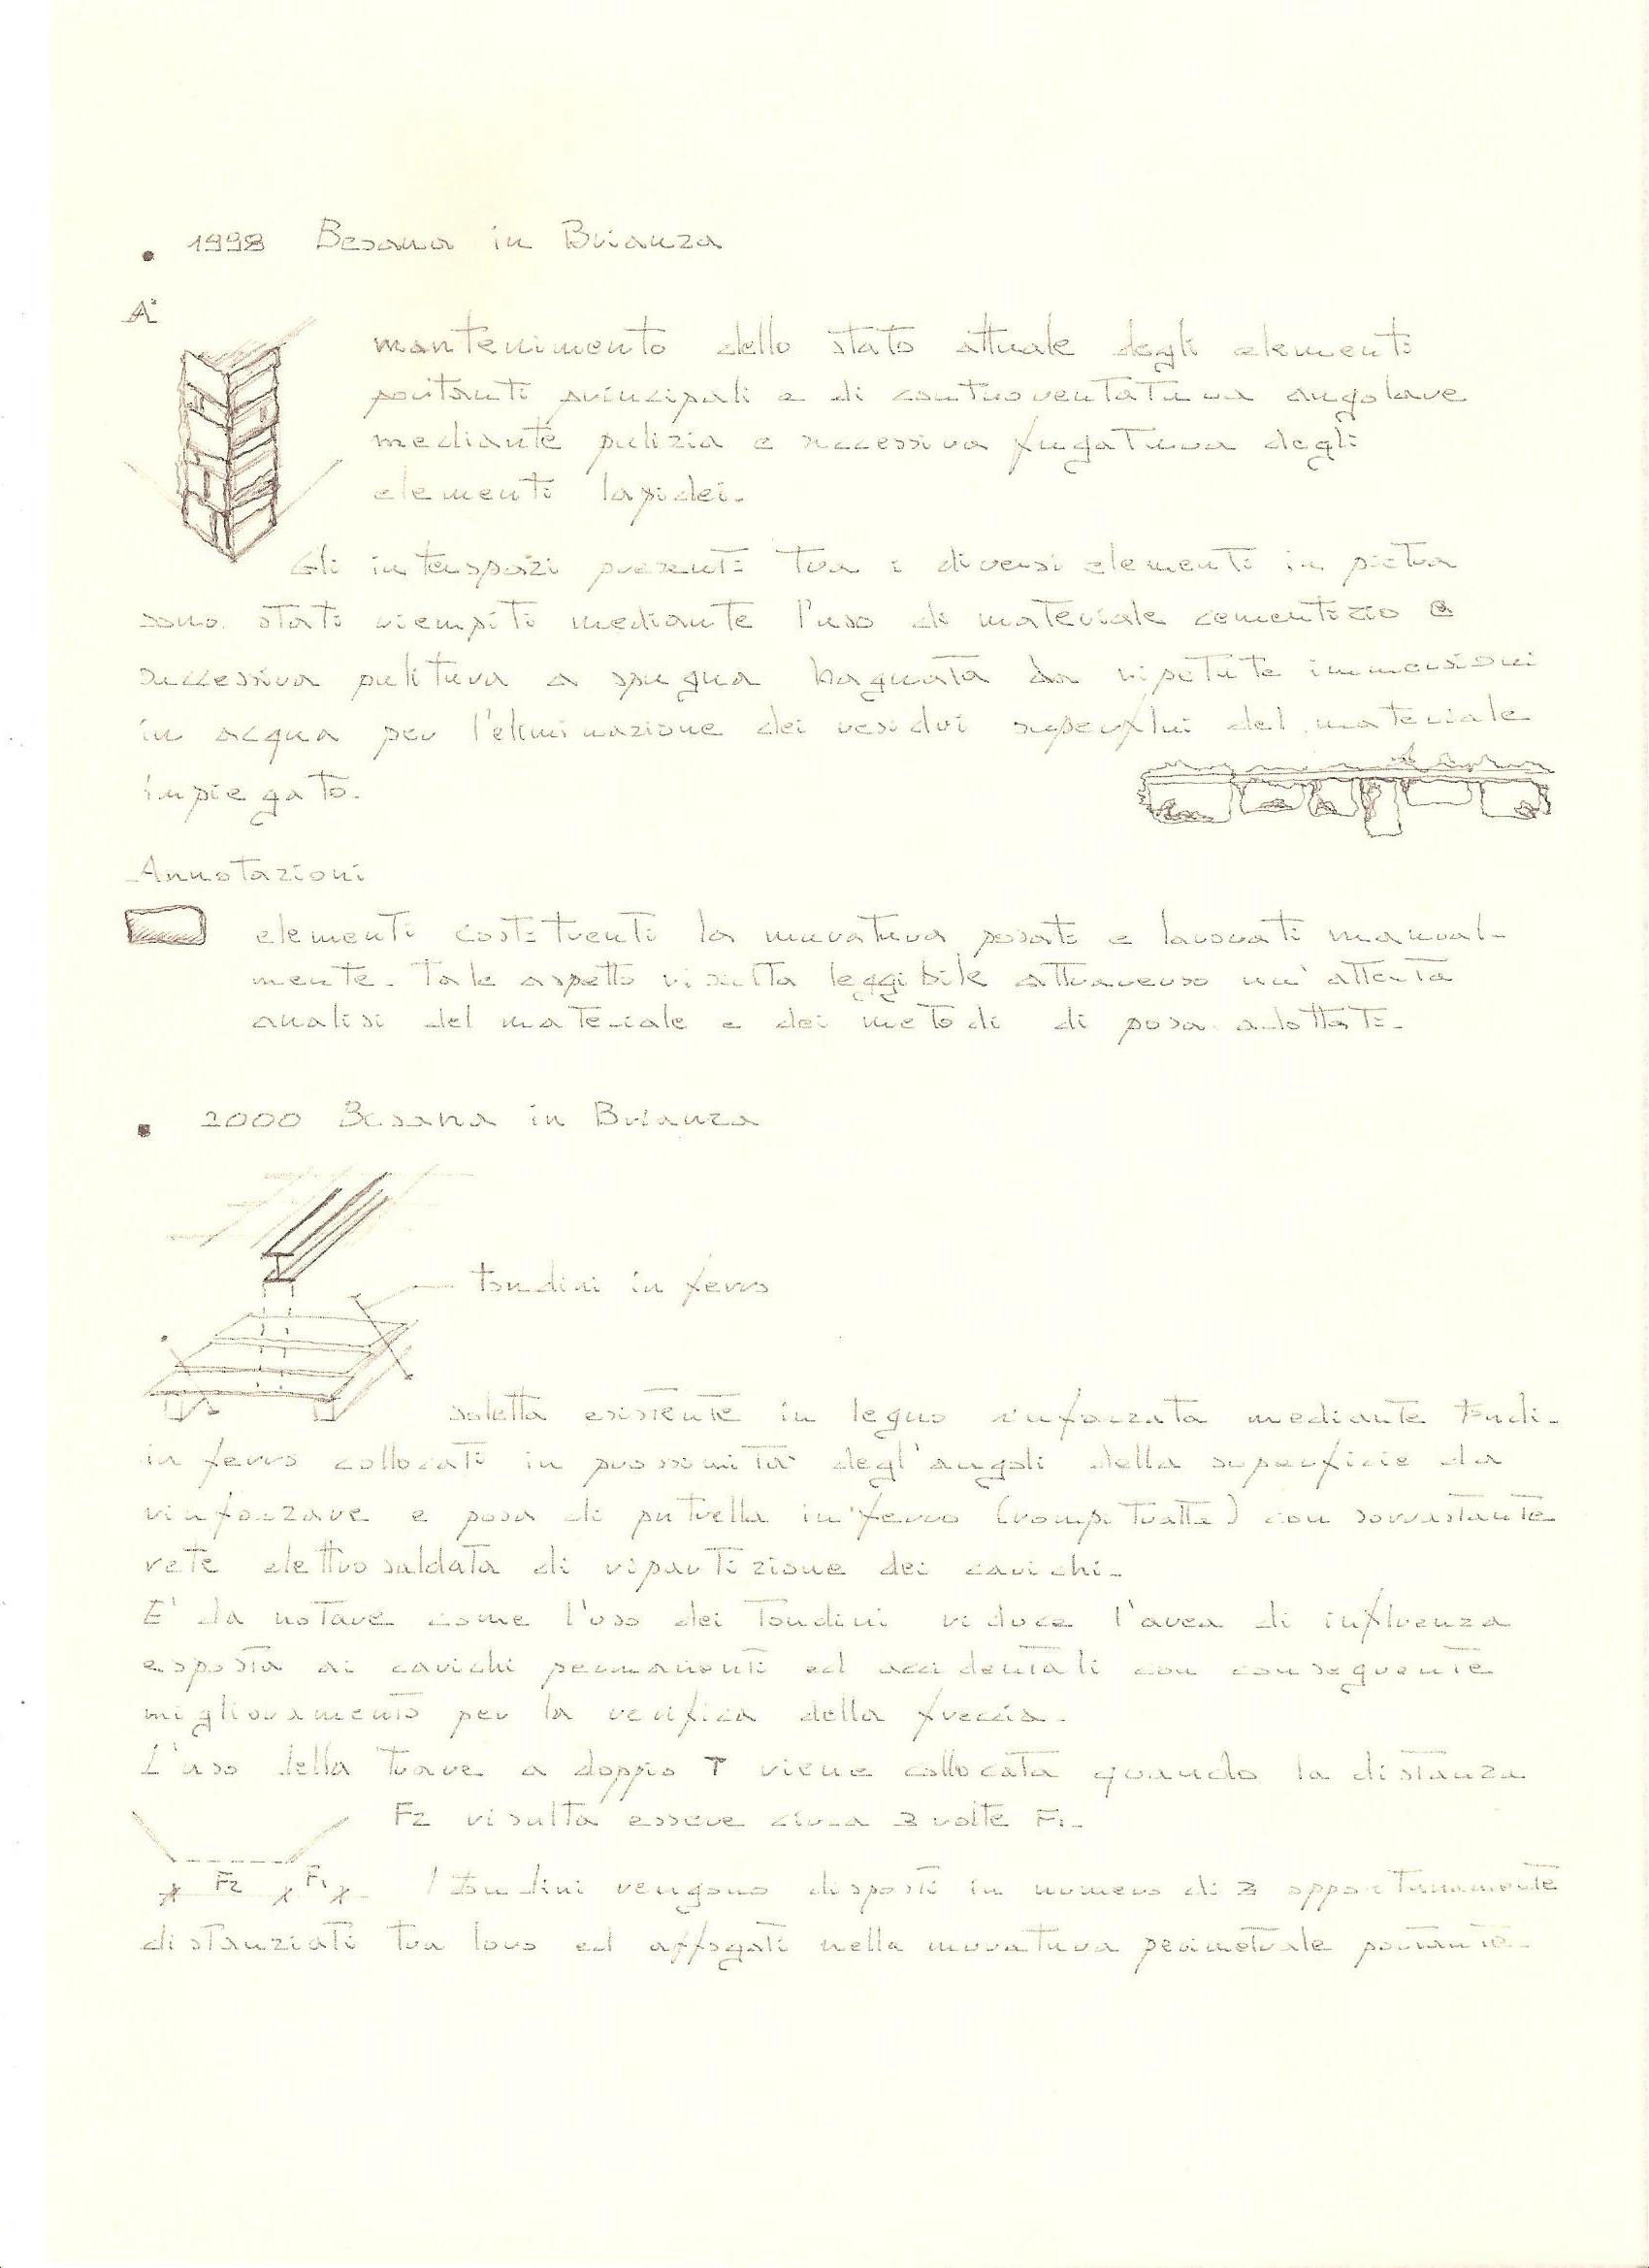 1998 Besana in Brianza
A
mantenimento dello stato attuale degli elementi
portanti principali e di controventatura angolare
mediante pulizia e successiva fugatura degli
elementi lapidei.
Gli interspazi presenti tra i diversi elementi in pietra
sono stati riempiti mediante l'uso di materiale cementizio e
successiva pulitura a spugna bagnata da ripetute immersioni
in acqua per l'eliminazione dei residui superflui del materiale
impiegato.
Annotazioni
elementi costituenti la muratura posati e lavorati manual-
mente. Tale aspetto risulta leggibile attraverso un'attenta
analisi del materiale e dei metodi di posa adottati.
2000 Besana in Brianza
tondini in ferro
soletta esistente in legno rinforzata mediante
in ferro collocati in prossimità degl'angoli della superficie da
rinforzare e posa di putrella in ferro (rompitratta) con sovrastante
rete elettrosaldata di ripartizione dei carichi.
E' da notare come l'uso dei tondini riduce l'area di influenza
esposta ai carichi permanenti ed accidentali con conseguente
miglioramento per la verifica della freccia.
L'uso della trave a doppio T viene collocata quando la distanza
F2 risulta essere circa 3 volte F1.
F2 F1
I tondini vengono disposti in numero di opportunamente
distanziati tra loro ed affogati nella muratura perimetrale portante.